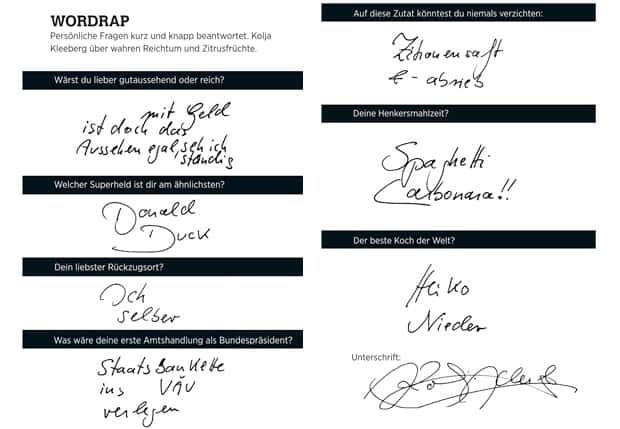 WORDRAP
Persönliche Fragen kurz und knapp beantwortet. Kolja
Kleeberg über wahren Reichtum und Zitrusfrüchte.
Wärst du lieber gutaussehend oder reich?
mit Geld
ist doch das
Aussehen egal, seh ich
ständig
Welcher Superheld ist dir am ähnlichsten?
Donald
Duck
Dein liebster Rückzugsort?
Ich
selber
Was wäre deine erste Amtshandlung als Bundespräsident?
Staatsbankette
ins VAU
verlegen
Auf diese Zutat könntest du niemals verzichten:
Zitronensaft
&-abrieb
Deine Henkersmahlzeit?
Spaghetti
Carbonara!!
Der beste Koch der Welt?
Heiko
Nieder
Unterschrift: